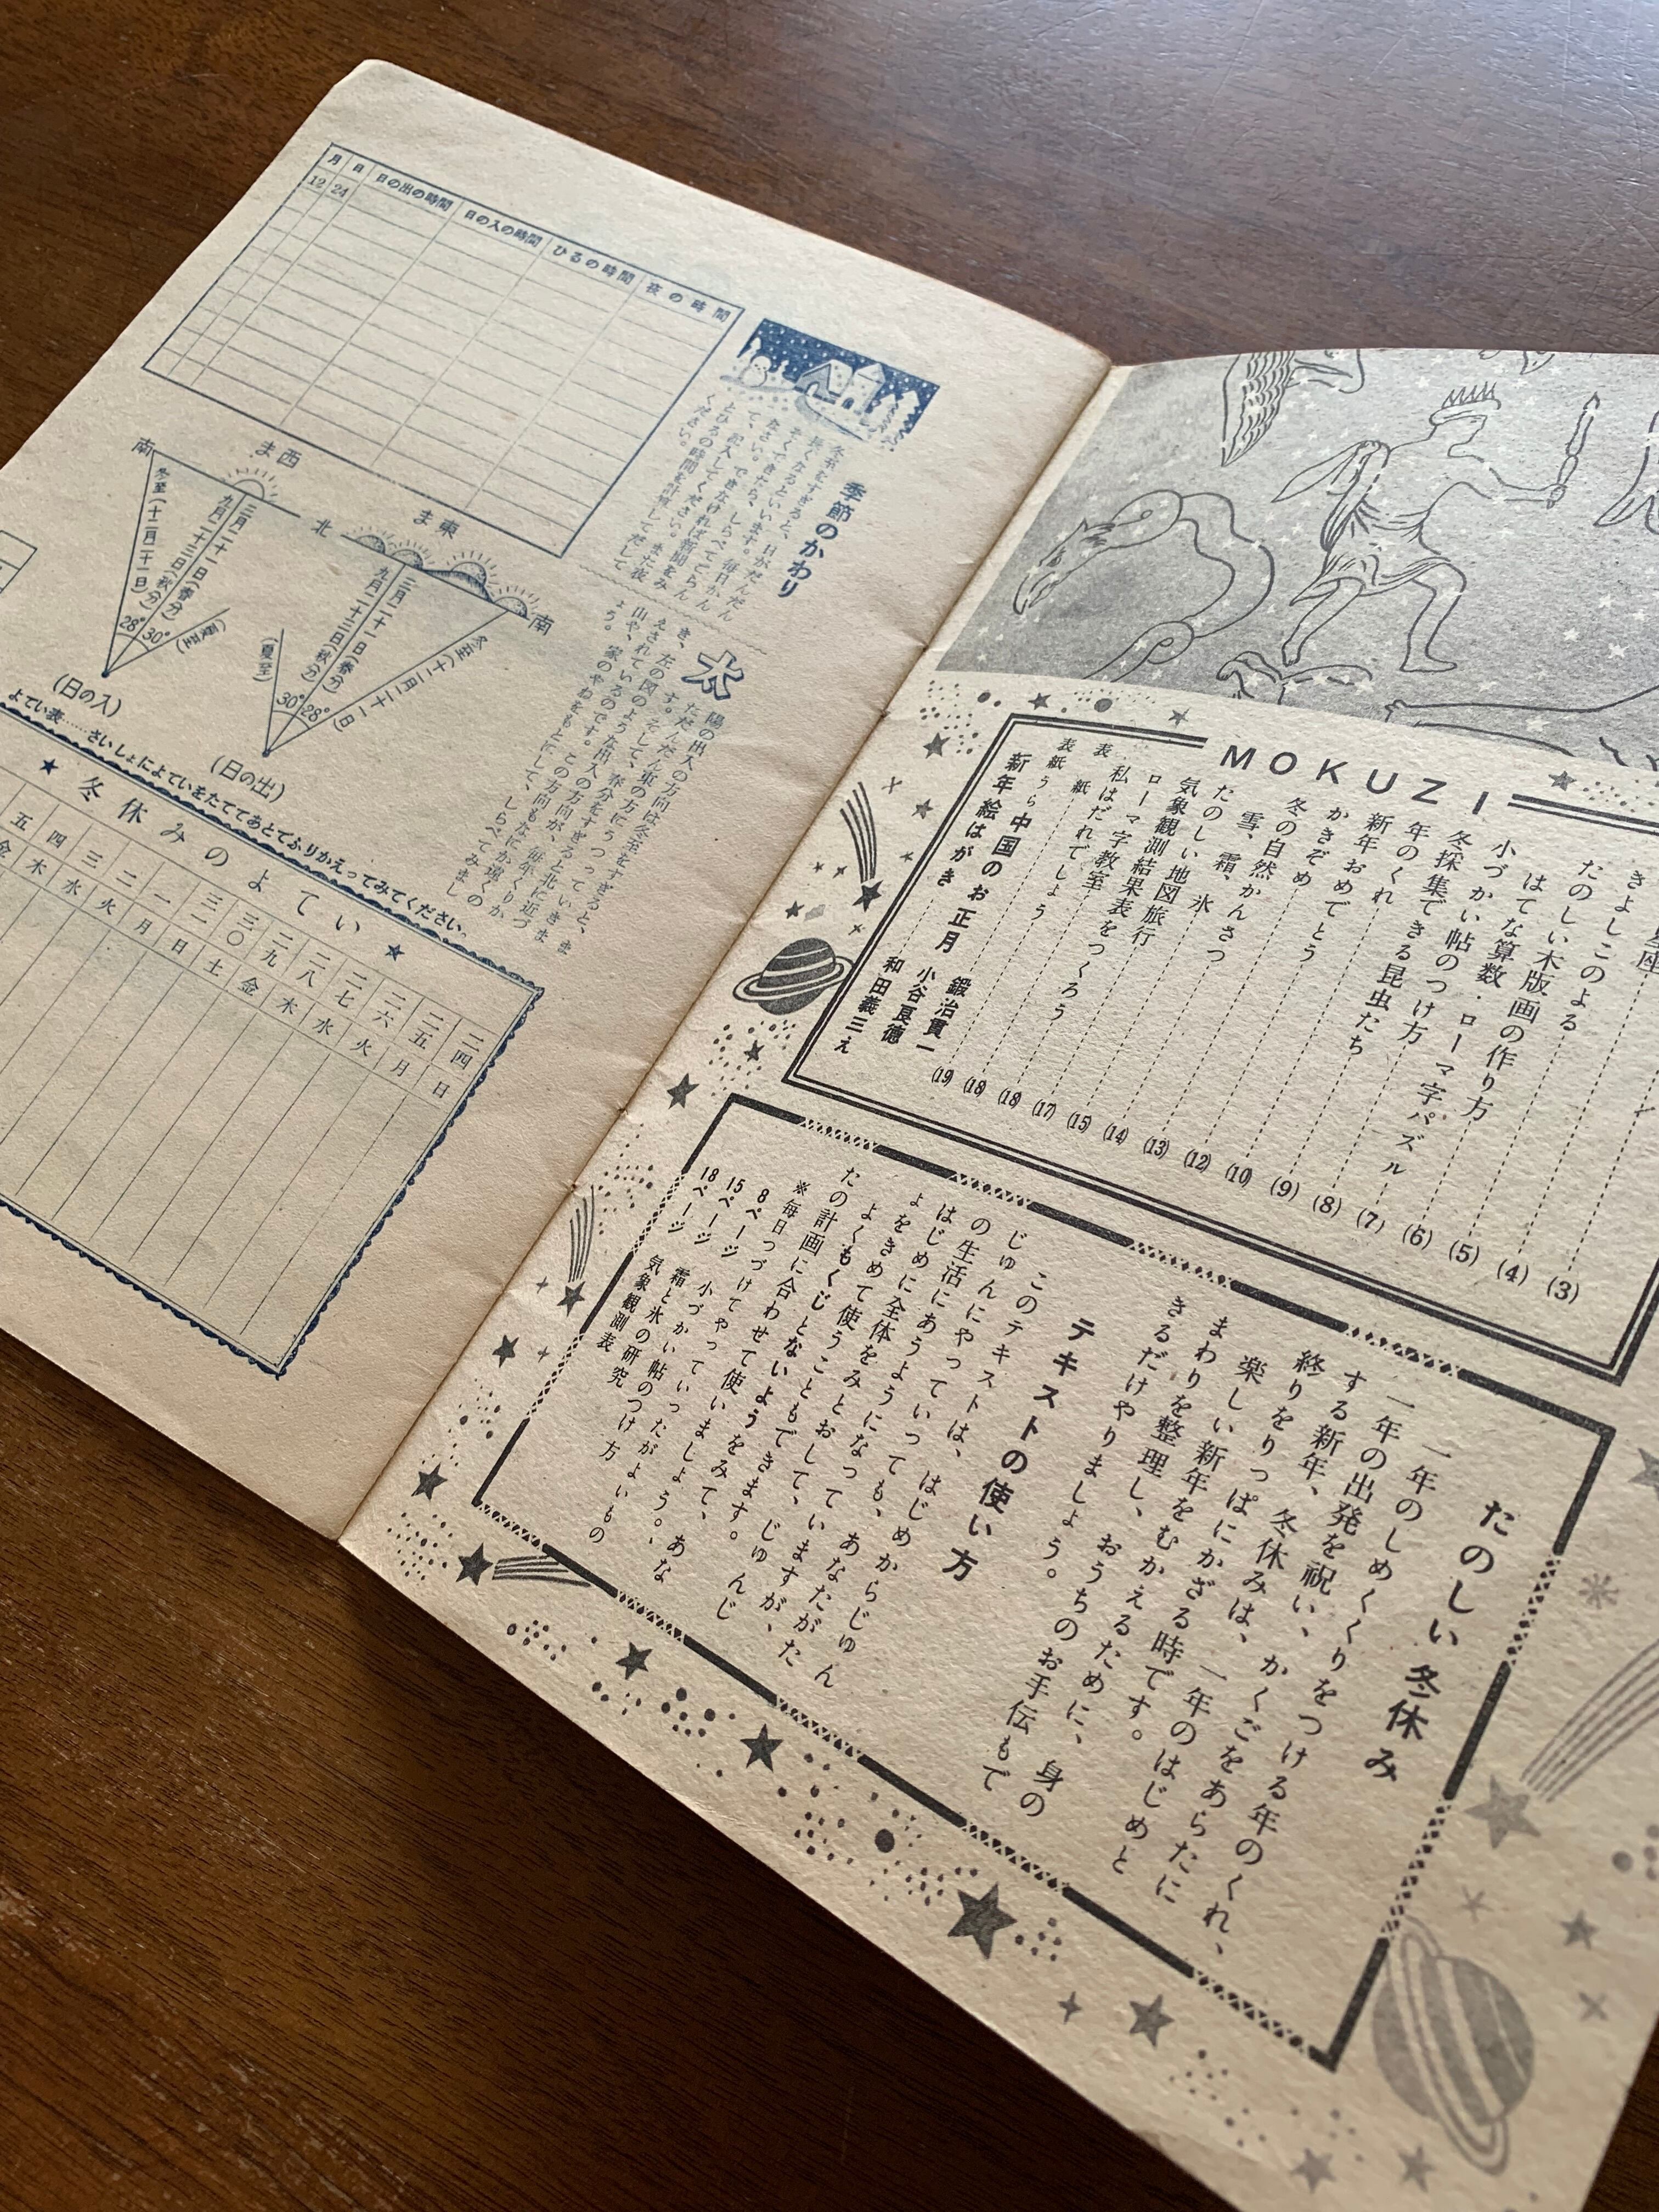 MOKUZI
きよしこのよる
たのしい木版画の作り方
はてな算数・ローマ字パズル
小づかい帖のつけ方
冬採集できる昆虫たち
年のくれ
新年おめでとう
かきぞめ
冬の自然かんさつ
雪、霜、氷
たのしい地図旅行
気象観測結果表をつくろう
ローマ字教室
私はだれでしょう
表紙うら 中国のお正月 鍛治貫一
小谷良徳
表紙 新年絵はがき 和田義三え
(3)
(4)
(5)
(6)
(7)
(8)
(9)
(10)
(12)
(13)
(14)
(15)
(17)
(18)
(18)
(19)
たのしい冬休み
一年のしめくくりをつける年のくれ、
一年の出発を祝い、かくごをあらたに
する新年、冬休みは、一年のはじめと
終りをりっぱにかざる時です。
楽しい新年をむかえるために、身の
まわりを整理し、おうちのお手伝もで
きるだけやりましょう。
テキストの使い方
このテキストは、はじめからじゅん
じゅんにやっていっても、あなたがた
の生活にあうようになっていますが、
はじめに全体をみとおして、じゅんじ
ょをきめて使うこともできます。
よくもくじとないようをみて、あな
たの計画に合わせて使いましょう。
※毎日つづけてやっていったがよいもの
8ページ 小づかい帖のつけ方
15ページ 霜と氷の研究
18ページ 気象観測表
季節のかわり
冬至をすぎると、日がだんだん
長くなるといいます。毎日かん
たんに
太陽の出入の方向は冬至をすぎると、ま
ただんだん東の方にうつっていきま
す。そして、春分をすぎると北に近づ
き、左の図のような出入の方向が、毎年くりか
えされているのです。この方向もなにか遠くの
山や、家のやねをもとにして、しらべてみまし
ょう。
月 日 日の出の時間 日の入の時間 ひるの時間 夜の時間
12 24
南
西
ま
北
東
ま
南
冬至(十二月二十一日)
三月二十一日(春分)
九月二十三日(秋分)
(夏至)
28° 30°
(日の入)
(夏至)
三月二十一日(春分)
九月二十三日(秋分)
冬至(十二月二十一日)
30° 28°
(日の出)
よてい表……さいしょによていをたててあとでふりかえってみてください。
★冬休みのよてい★
二四 二五 二六 二七 二八 二九 三〇 三一 一 二 三 四 五
日 月 火 水 木 金 土 日 月 火 水 木 金